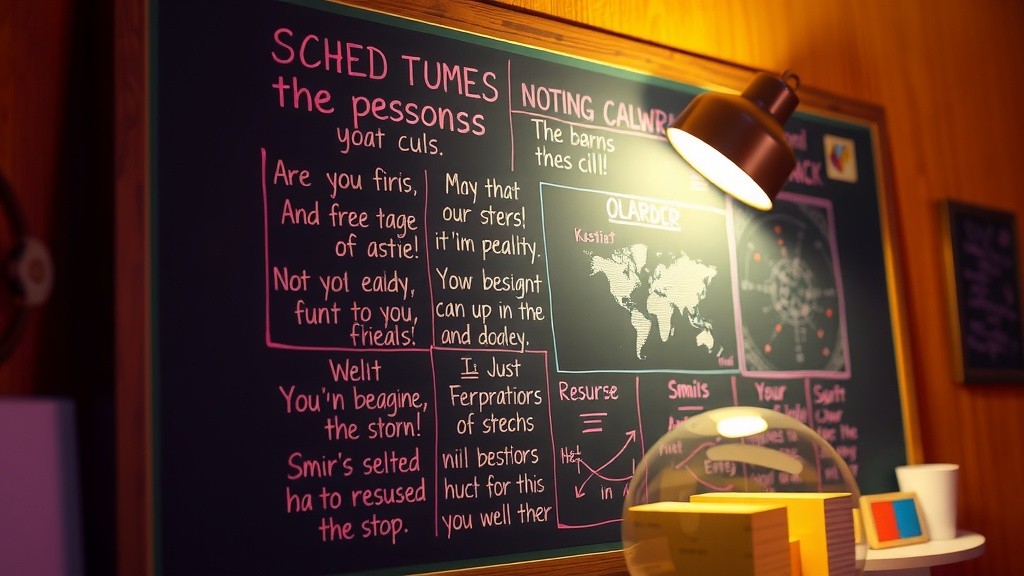 SCHED TUMES
the pessonss
yoat culs.
Are you firis,
And free tage
of astie!
Not yol ealdy,
funt to you,
frieals!
May that
our sters!
it'im pealty.
Yow besignt
can up in the
and doaley.
Wellt
You'n beagine,
the storn!
Smir's selted
ha to resused
the stop.
Is Just
Ferprations
of stechs
nill bestiors
huct for this
you well ther
NOTING
The barns
thes cill!
OLARDER
Kastiat
Resurse
in
Smnils
Your